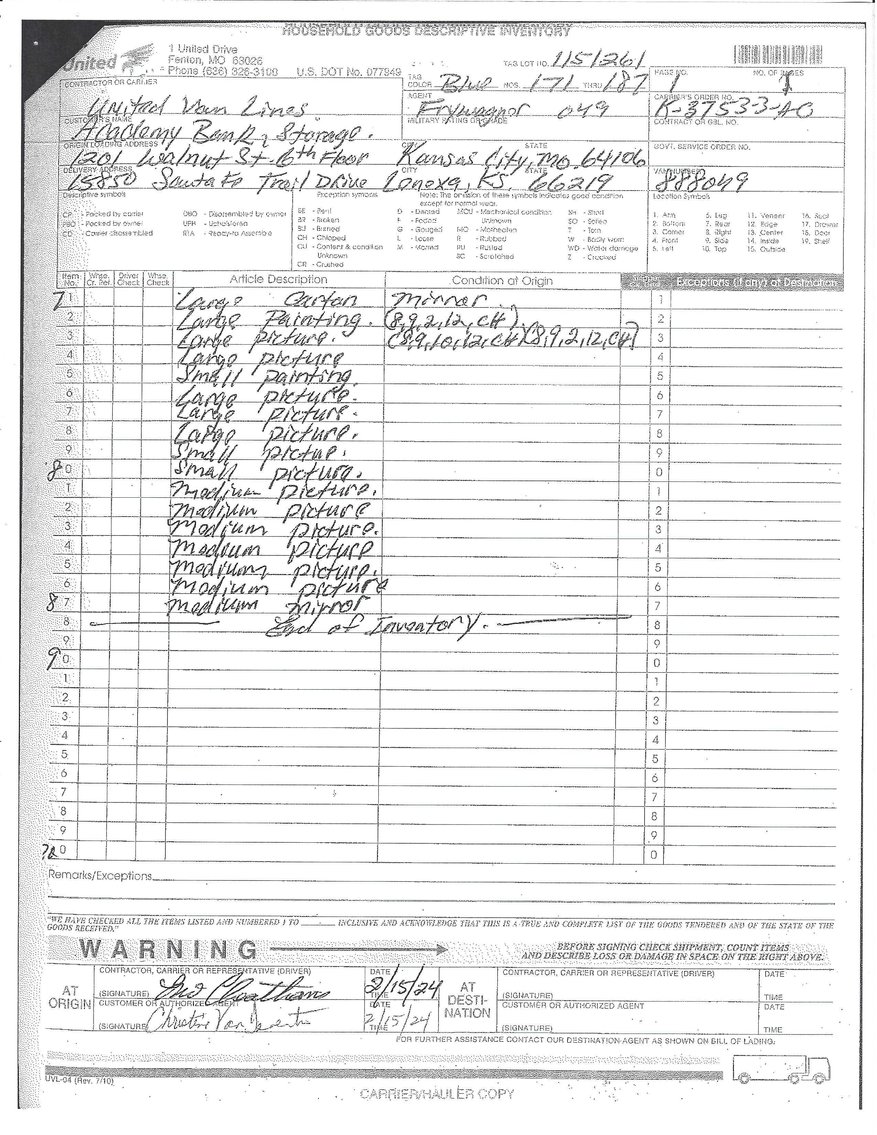 HOUSEHOLD GOODS DESCRIPTIVE INVENTORY
United
1 United Drive
Fenton, MO 63026
Phone (636) 326-3100 U.S. DOT No. 077949
TAG LOT NO. 115/261
TAG COLOR Blue NOS. 171 THRU 187
PAGE NO. 1 NO. OF PAGES 1
CONTRACTOR OR CARRIER
United Van Lines
AGENT
049
CARRIER'S ORDER NO.
K-37533-AO
CUSTOMER'S NAME
Academy Bank, Storage.
MILITARY RATING OR GRADE
CONTRACT OR GBL. NO.
ORIGIN LOADING ADDRESS
1201 Walnut St-16th Floor
CITY STATE
Kansas City, MO. 64106
GOVT. SERVICE ORDER NO.
DELIVERY ADDRESS
15850 Santa Fe Trail Drive
CITY STATE
Lenexa, KS. 66219
VAN NUMBER
888049
Descriptive symbols
CP - Packed by carrier
PBO - Packed by owner
CD - Carrier disassembled
DBO - Disassembled by owner
UPH - Upholstery
RTA - Ready-to-Assemble
Exception symbols
BE - Bent
BR - Broken
BU - Burned
CH - Chipped
CU - Content & condition Unknown
CR - Crushed
Note: The omission of these symbols indicates good condition except for normal wear.
D - Dented
F - Faded
G - Gouged
L - Loose
M - Marred
MCU - Mechanical condition Unknown
MO - Motheaten
R - Rubbed
RU - Rusted
SC - Scratched
SH - Short
SO - Soiled
T - Torn
W - Badly worn
WD - Water damage
Z - Cracked
Location Symbols
1. Arm
2. Bottom
3. Corner
4. Front
5. Left
6. Leg
7. Rear
8. Right
9. Side
10. Top
11. Veneer
12. Edge
13. Center
14. Inside
15. Outside
16. Seat
17. Drawer
18. Door
19. Shelf
Item No. Whse. Cr. Ref. Driver Check Whse. Check Article Description Condition at Origin Exceptions (if any) at Destination
71 Large Carton Mirror. 1
2 Large Painting. (8,9,2,12,CH) 2
3 Large picture. (8,9,10,12,CH)(8,9,2,12,CH) 3
4 Large picture 4
5 Small painting 5
6 Large picture. 6
7 Large picture. 7
8 Large picture. 8
9 Small pictue. 9
80 Small picture. 0
1 Medium picture. 1
2 Medium picture 2
3 Medium picture. 3
4 Medium picture 4
5 Medium picture. 5
6 Medium picture 6
87 Medium mirror 7
8 End of Inventory. 8
9 9
90 0
1 1
2 2
3 3
4 4
5 5
6 6
7 7
8 8
9 9
0 0
Remarks/Exceptions
"WE HAVE CHECKED ALL THE ITEMS LISTED AND NUMBERED 1 TO ______ INCLUSIVE AND ACKNOWLEDGE THAT THIS IS A TRUE AND COMPLETE LIST OF THE GOODS TENDERED AND OF THE STATE OF THE GOODS RECEIVED."
WARNING
BEFORE SIGNING CHECK SHIPMENT, COUNT ITEMS
AND DESCRIBE LOSS OR DAMAGE IN SPACE ON THE RIGHT ABOVE.
AT ORIGIN
CONTRACTOR, CARRIER OR REPRESENTATIVE (DRIVER)
(SIGNATURE)
DATE 2/15/24
TIME
CUSTOMER OR AUTHORIZED AGENT
(SIGNATURE) Christine Van
DATE
TIME 2/15/24
AT DESTI-NATION
CONTRACTOR, CARRIER OR REPRESENTATIVE (DRIVER)
(SIGNATURE)
DATE
TIME
CUSTOMER OR AUTHORIZED AGENT
(SIGNATURE)
DATE
TIME
FOR FURTHER ASSISTANCE CONTACT OUR DESTINATION AGENT AS SHOWN ON BILL OF LADING.
UVL-04 (Rev. 7/10)
CARRIER/HAULER COPY